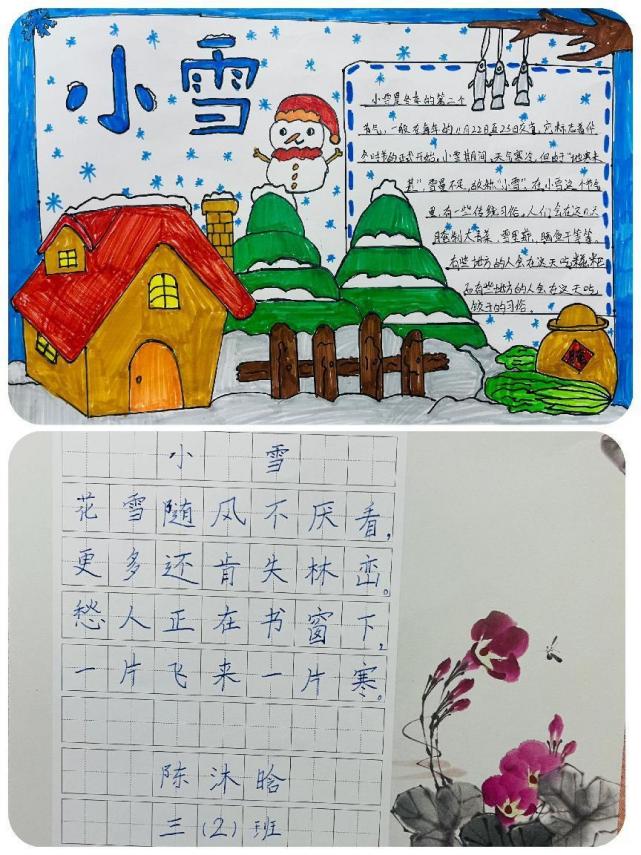 小雪
小雪是冬季的第二个
节气,一般在每年的11月22日至23日交节,它标志着仲
冬时节的正式开始,小雪期间,天气寒冷,但由于"地寒未
甚",雪量不足,故称"小雪"。在小雪这个节气
里,有一些传统习俗,人们会在这几天
腌制大青菜,雪里蕻,晒鱼干等等,
有些地方的人会在这天吃糍粑
和有些地方的人会在这天吃
饺子的习俗。
小雪
花雪随风不厌看,
更多还肯失林峦。
愁人正在书窗下,
一片飞来一片寒。
陈沐晗
三(2)班